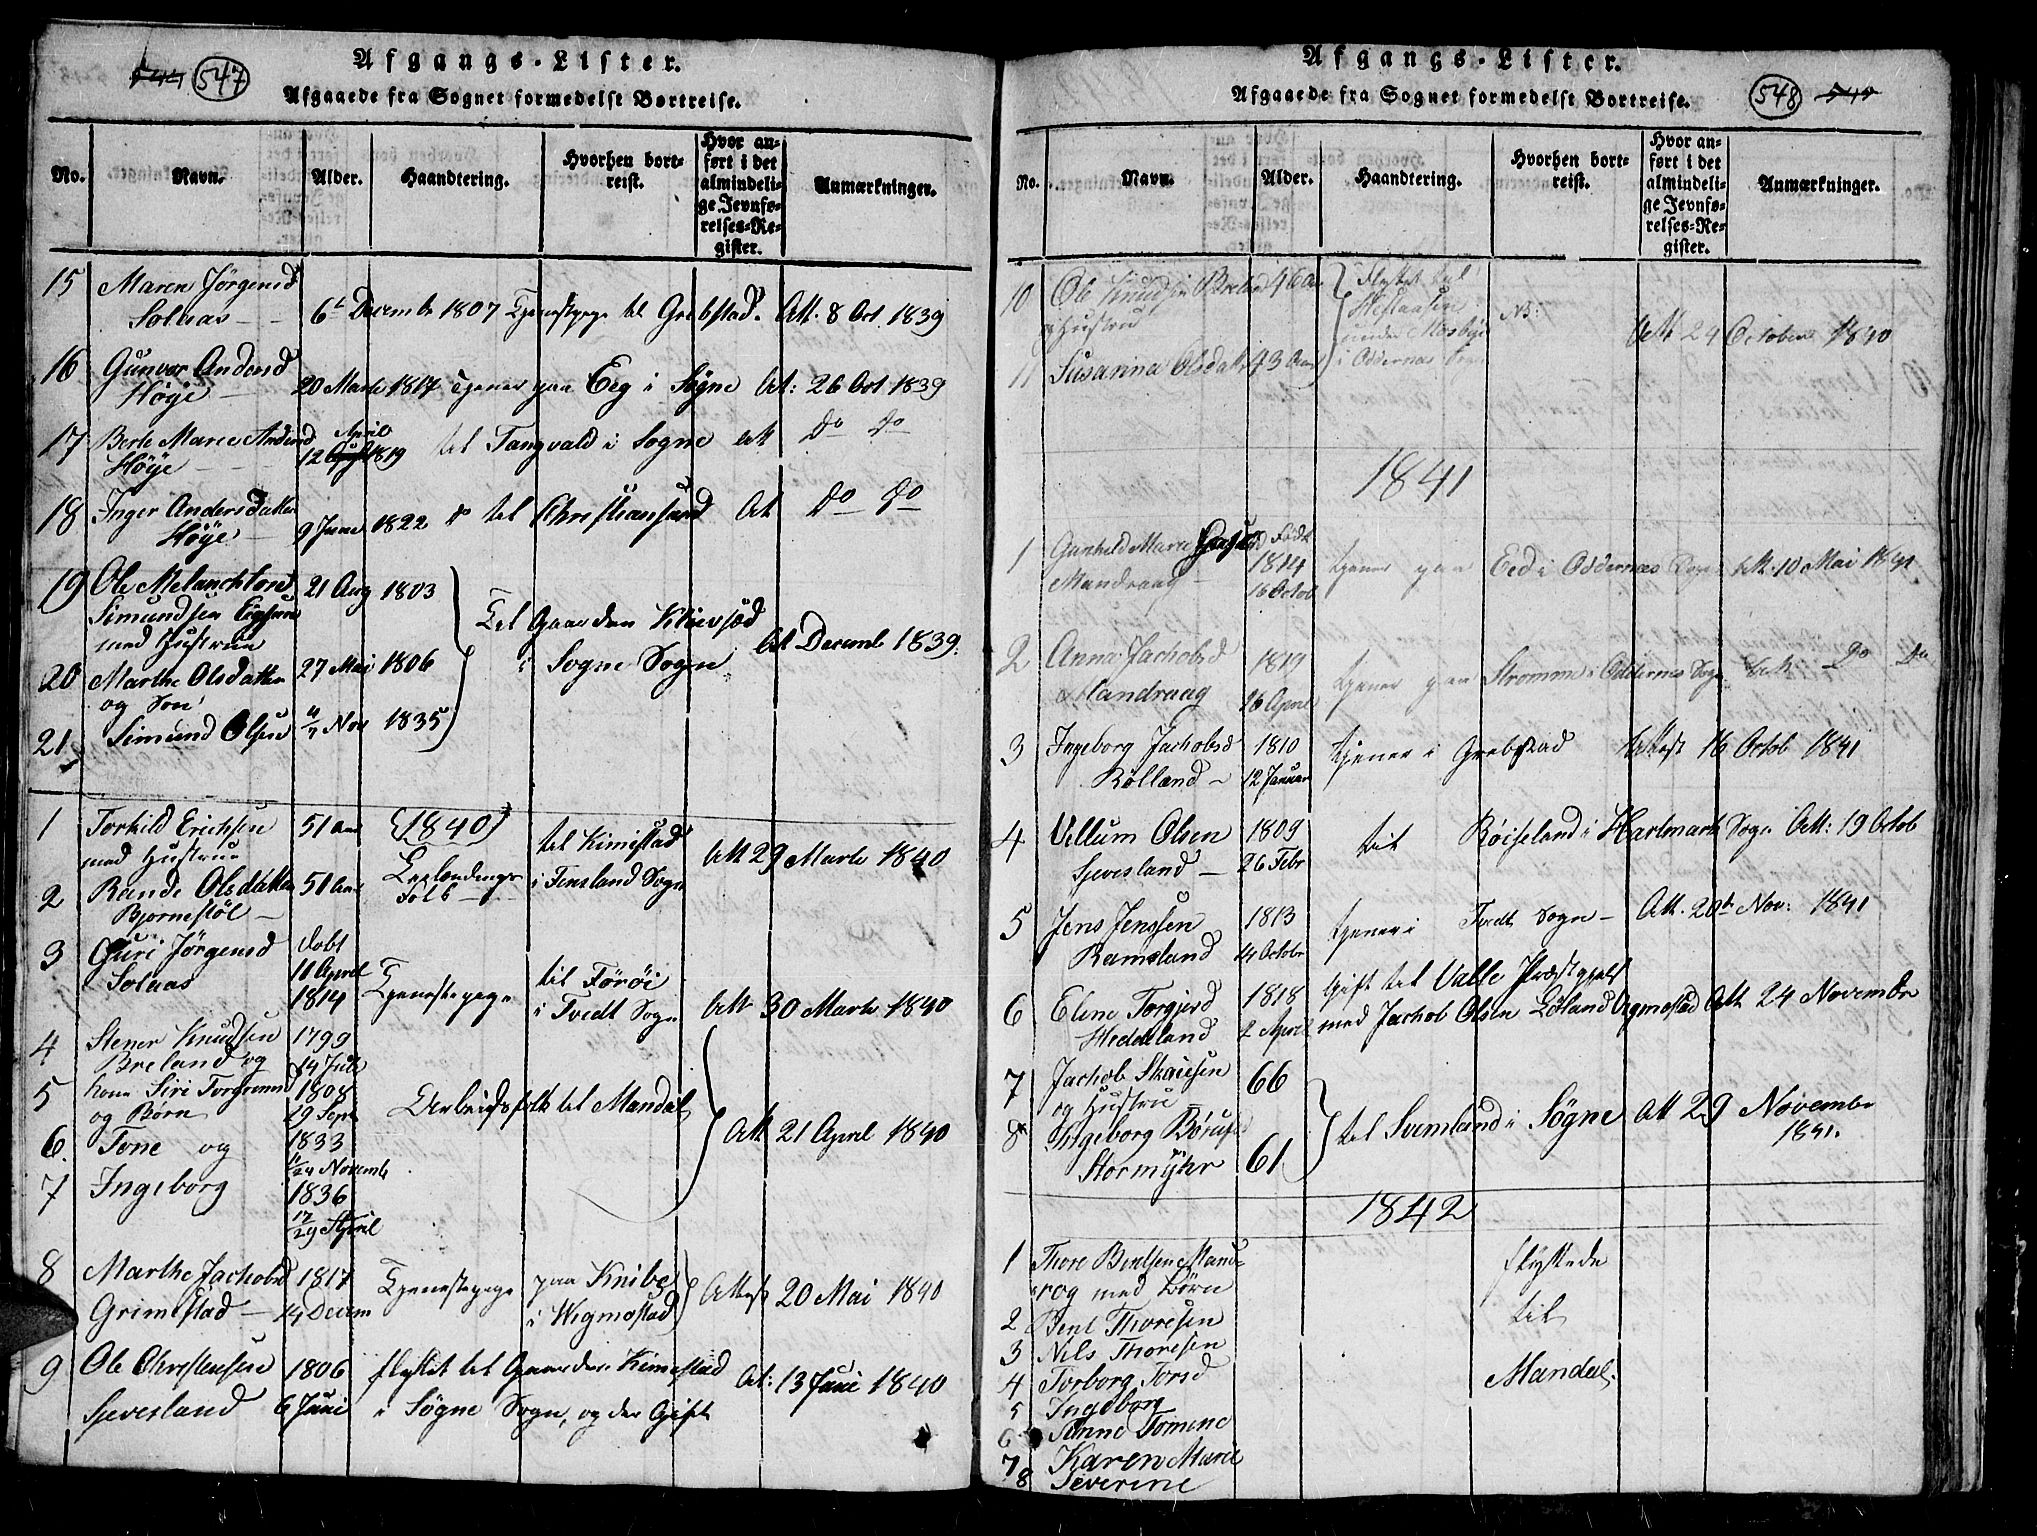 547
Afgangs-Lister.
Afgaaede fra Sognet formedelst Bortreise.
No. Navn. Alder. Haandtering. Hvorhen bortreist. Hvor anført i det almindelige Jevnførelses-Register. Anmærkninger.
15 Maren Jørgensd
Solaas 6te Decembr 1807 Tjenestpige til Grebstad. Att. 8 Oct. 1839
16 Gunvor Andersd
Høye 20 Marts 1817 tjener paa Eeg i Søgne Att: 26 Oct. 1839
17 Berte Marie Andersd
Høye 12 April 1819 til Tangvald i Sogne Att Do Do
18 Inger Andersdatter
Høye 9 June 1822 do til Christiansand Att Do Do
19 Ole Melanchtore 21 Aug 1803
Simundsen
med Hustrue
20 Marthe Olsdatter 27 Mai 1806
og Søn
21 Simund Olsen 4/7 Nov 1835
Til Gaarden
i Sogne Sogn Att Decemb 1839.
1840
1 Torkild Erichsen 51 aar
med Hustrue
2 Rande Olsdatter 51 aar
Bjørnestøl
Folk til Kimestad
i Finsland Sogn Att 29 Marts 1840
3 Guri Jørgensd
Solaas 11 April
1814 Tjenestepige til Förøi
i Tvedt Sogn Att 30 Marts 1840
4 Stener Knudsen 1799
Breland og 14 Juli
5 kone Siri Torgrimsd 1808
og Børn 29 Sept
6. Tone og 1833
11/24 Novemb
7 Ingeborg 1836
17/29 April
Arbeidsfolk til Mandal Att 21 April 1840
8 Marthe Jachobsd 1817 Tjenestepige paa Knibe
Grimestad 14 Decem i Wigmostad Attest 20 Mai 1840
9 Ole Christensen 1806 flyttet til Gaarden Kimestad
Sjevesland 6 Juni i Søgne Sogn, og der Gift Att: 13 Juni 1840
548
Afgangs-Lister.
Afgaaede fra Sognet formedelst Bortreise.
No. Navn. Alder. Haandtering. Hvorhen bortreist. Hvor anført i det almindelige Jevnførelses-Register. Anmærkninger.
10 Ole Knudsen Breland 46 Aar
og Hustru
11 Susanna Olsdatt 43 Aar
Flyttet til
under Mosby
i Oddernes Sogn
NB: Att 24 October 1840
1841
1 Gunhild Marie Født
Mandraag 1814
16 Octob
tjener paa Eed i Oddernæs Sogn Att. 10 Mai 1841
2 Anna Jachobsd 1819
Mandraag 26 April
tjener paa Stromme i Oddernes Sogn Att Do Do
3 Ingeborg Jachobsd 1810
Rolland 12 Januar
tjener i Grebstad Attest 16 Octob 1841
4 Vellum Olsen 1809
Sjevesland 26 Febr
til Röiseland i Hartmark Sogn Att: 19 Octob
5 Jens Jenssen 1813
Ramsland 14 Octobr
tjener i Tvedt Sogn Att. 20de Nov: 1841
6 Eline Torgjersd 1818
Heddeland 2 April
Gift til Valle Præstgjeld
med Jachob Olsen Løland Vigmostad Att 24 Novembr
7 Jachob Skaiesen 66
og Hustru
8 Ingeborg
Stormyhr 61
til Svemlund i Søgne Att 29 Novembr
1841.
1842
1 Thore Bentsen Mand-
rog med Börn
2 Bent Thoresen
3 Nils Thoresen
4 Torborg Torsd
5 Ingeborg
6 Anne Tomine
7 Karen Marie
8 Severine
flyttede
til
Mandal.